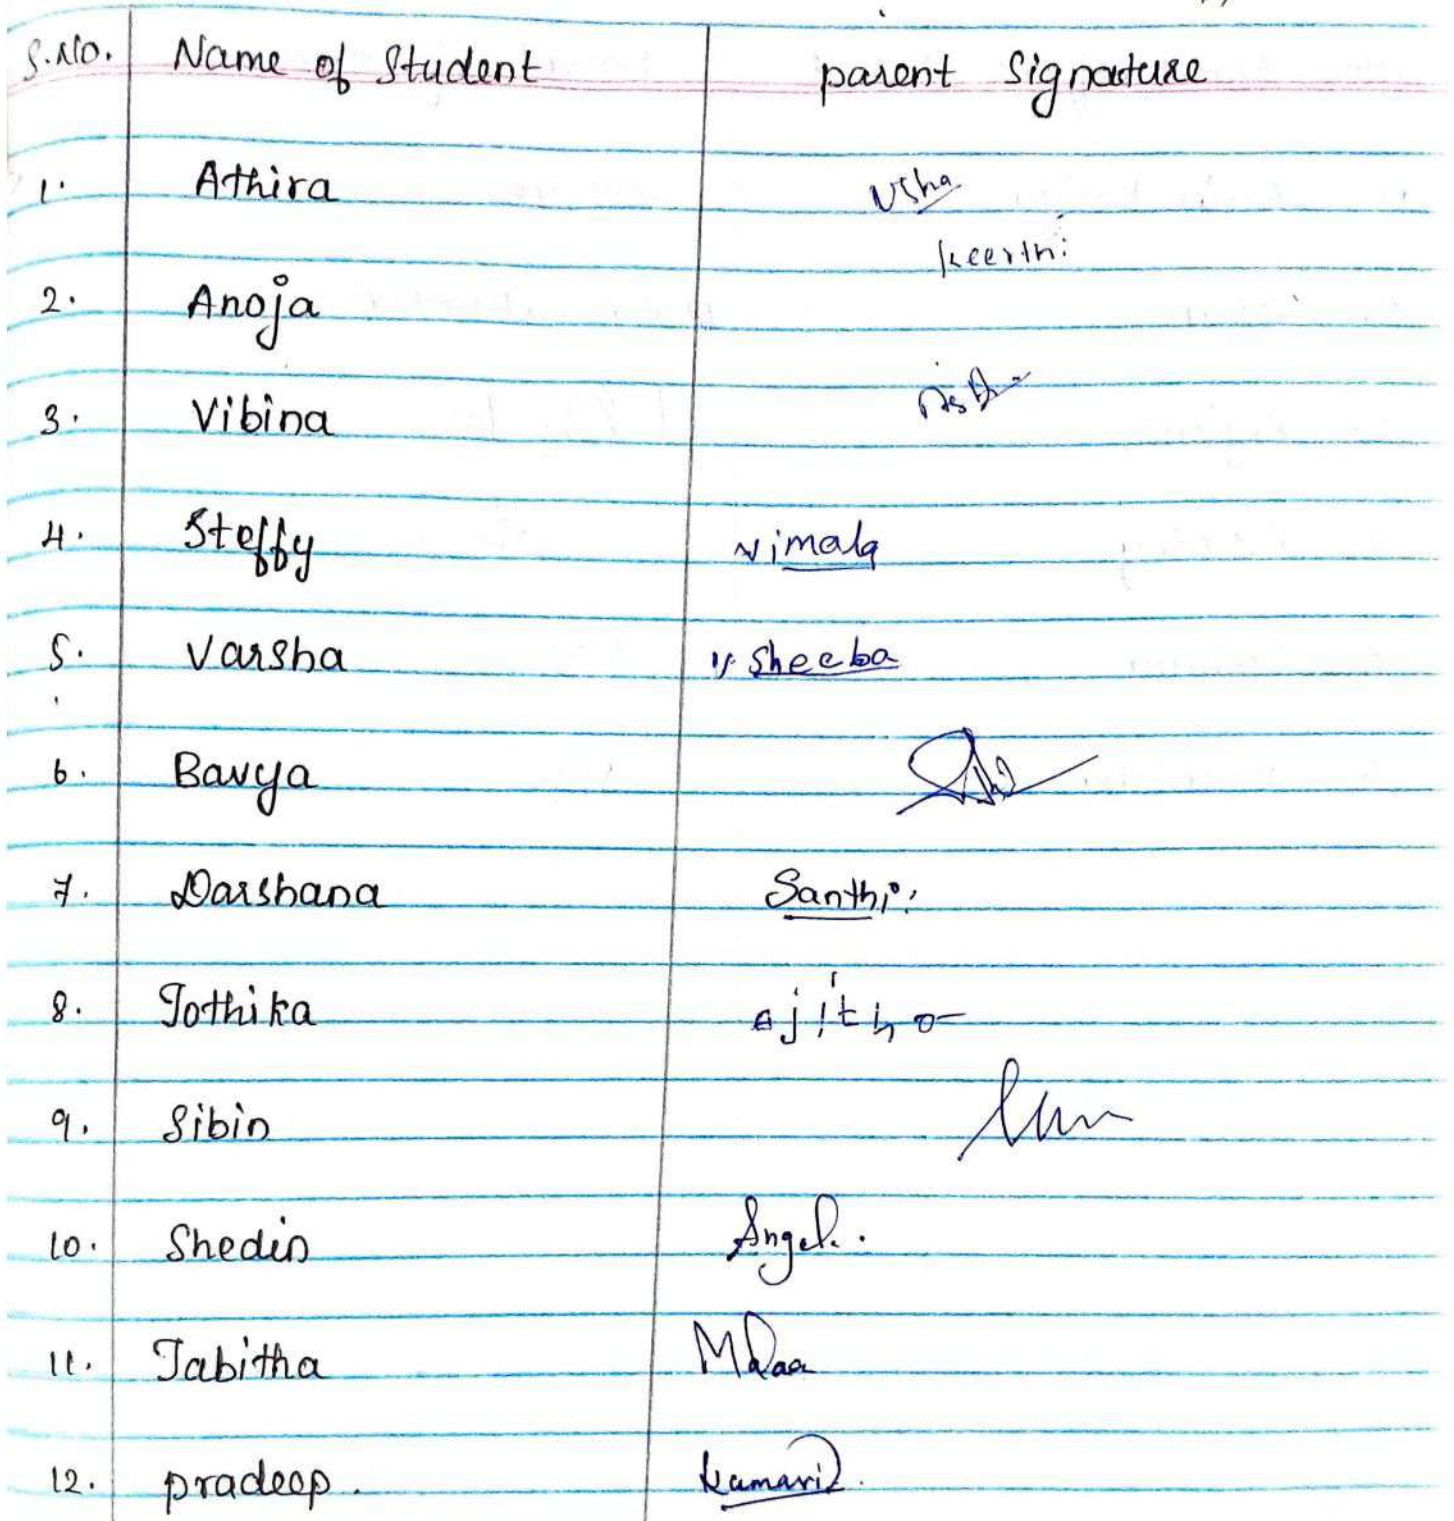 S.No. Name of Student parent Signature
1. Athira Usha
keerthi
2. Anoja
3. Vibina
4. Steffy Vimala
5. Varsha V. Sheeba
6. Bavya
7. Darshana Santhi
8. Jothika ajitha
9. Sibin
10. Shedin Angel.
11. Tabitha
12. pradeep. kumari